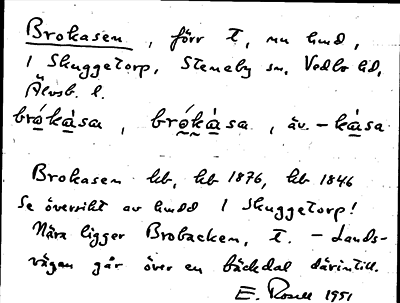 Brokasen, förr t, nu hmd,
i Skuggetorp, Steneby sn, Vedbo hd,
Älvsb. l.
brókàsa, brókàsa, äv. -kàsa
Brokasen hb, hb 1876, hb 1846
Se översikt av hmdd i Skuggetorp!
Nära ligger Brobacken, t. - Lands-
vägen går över en bäckdal därintill.
E. Rosell 1951